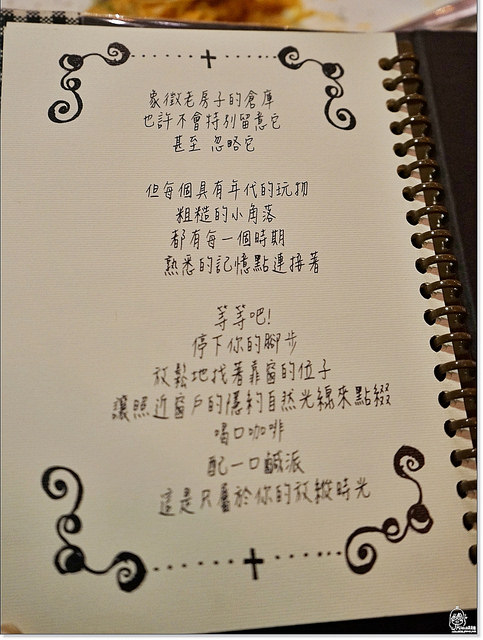 象徵老房子的倉庫
也許不會特別留意它
甚至 忽略它
但每個具有年代的玩物
粗糙的小角落
都有每一個時期
熟悉的記憶點連接著
等等吧!
停下你的腳步
放鬆地找著靠窗的位子
讓照近窗戶的隱約自然光線來點綴
喝口咖啡
配一口鹹派
這是只屬於你的放縱時光